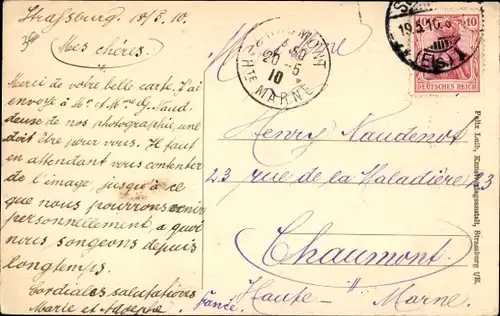 Strassburg. 18/5. 10.
Mes chères.
Merci de votre belle carte. J'ai
envoyé à Mr. et Mme G. Naud-
deuse de nos photographie, une
doit être pour vous. Il faut
en attendant vous contenter
de l'image, jusqu'à ce
que nous pourrons venir
personnellement, a quoi
nous songeons depuis
longtemps.
Cordiales salutations
Marie et
CHAUMONT
20-5
10
HTE MARNE
19.5.10.
(ELS.)
10
DEUTSCHES REICH
Henry Naudenot
23 rue de la Maladière 23
Chaumont.
Haute-Marne.
France.
Felix Luib, Kunstverlagsanstalt, Strassburg i/E.